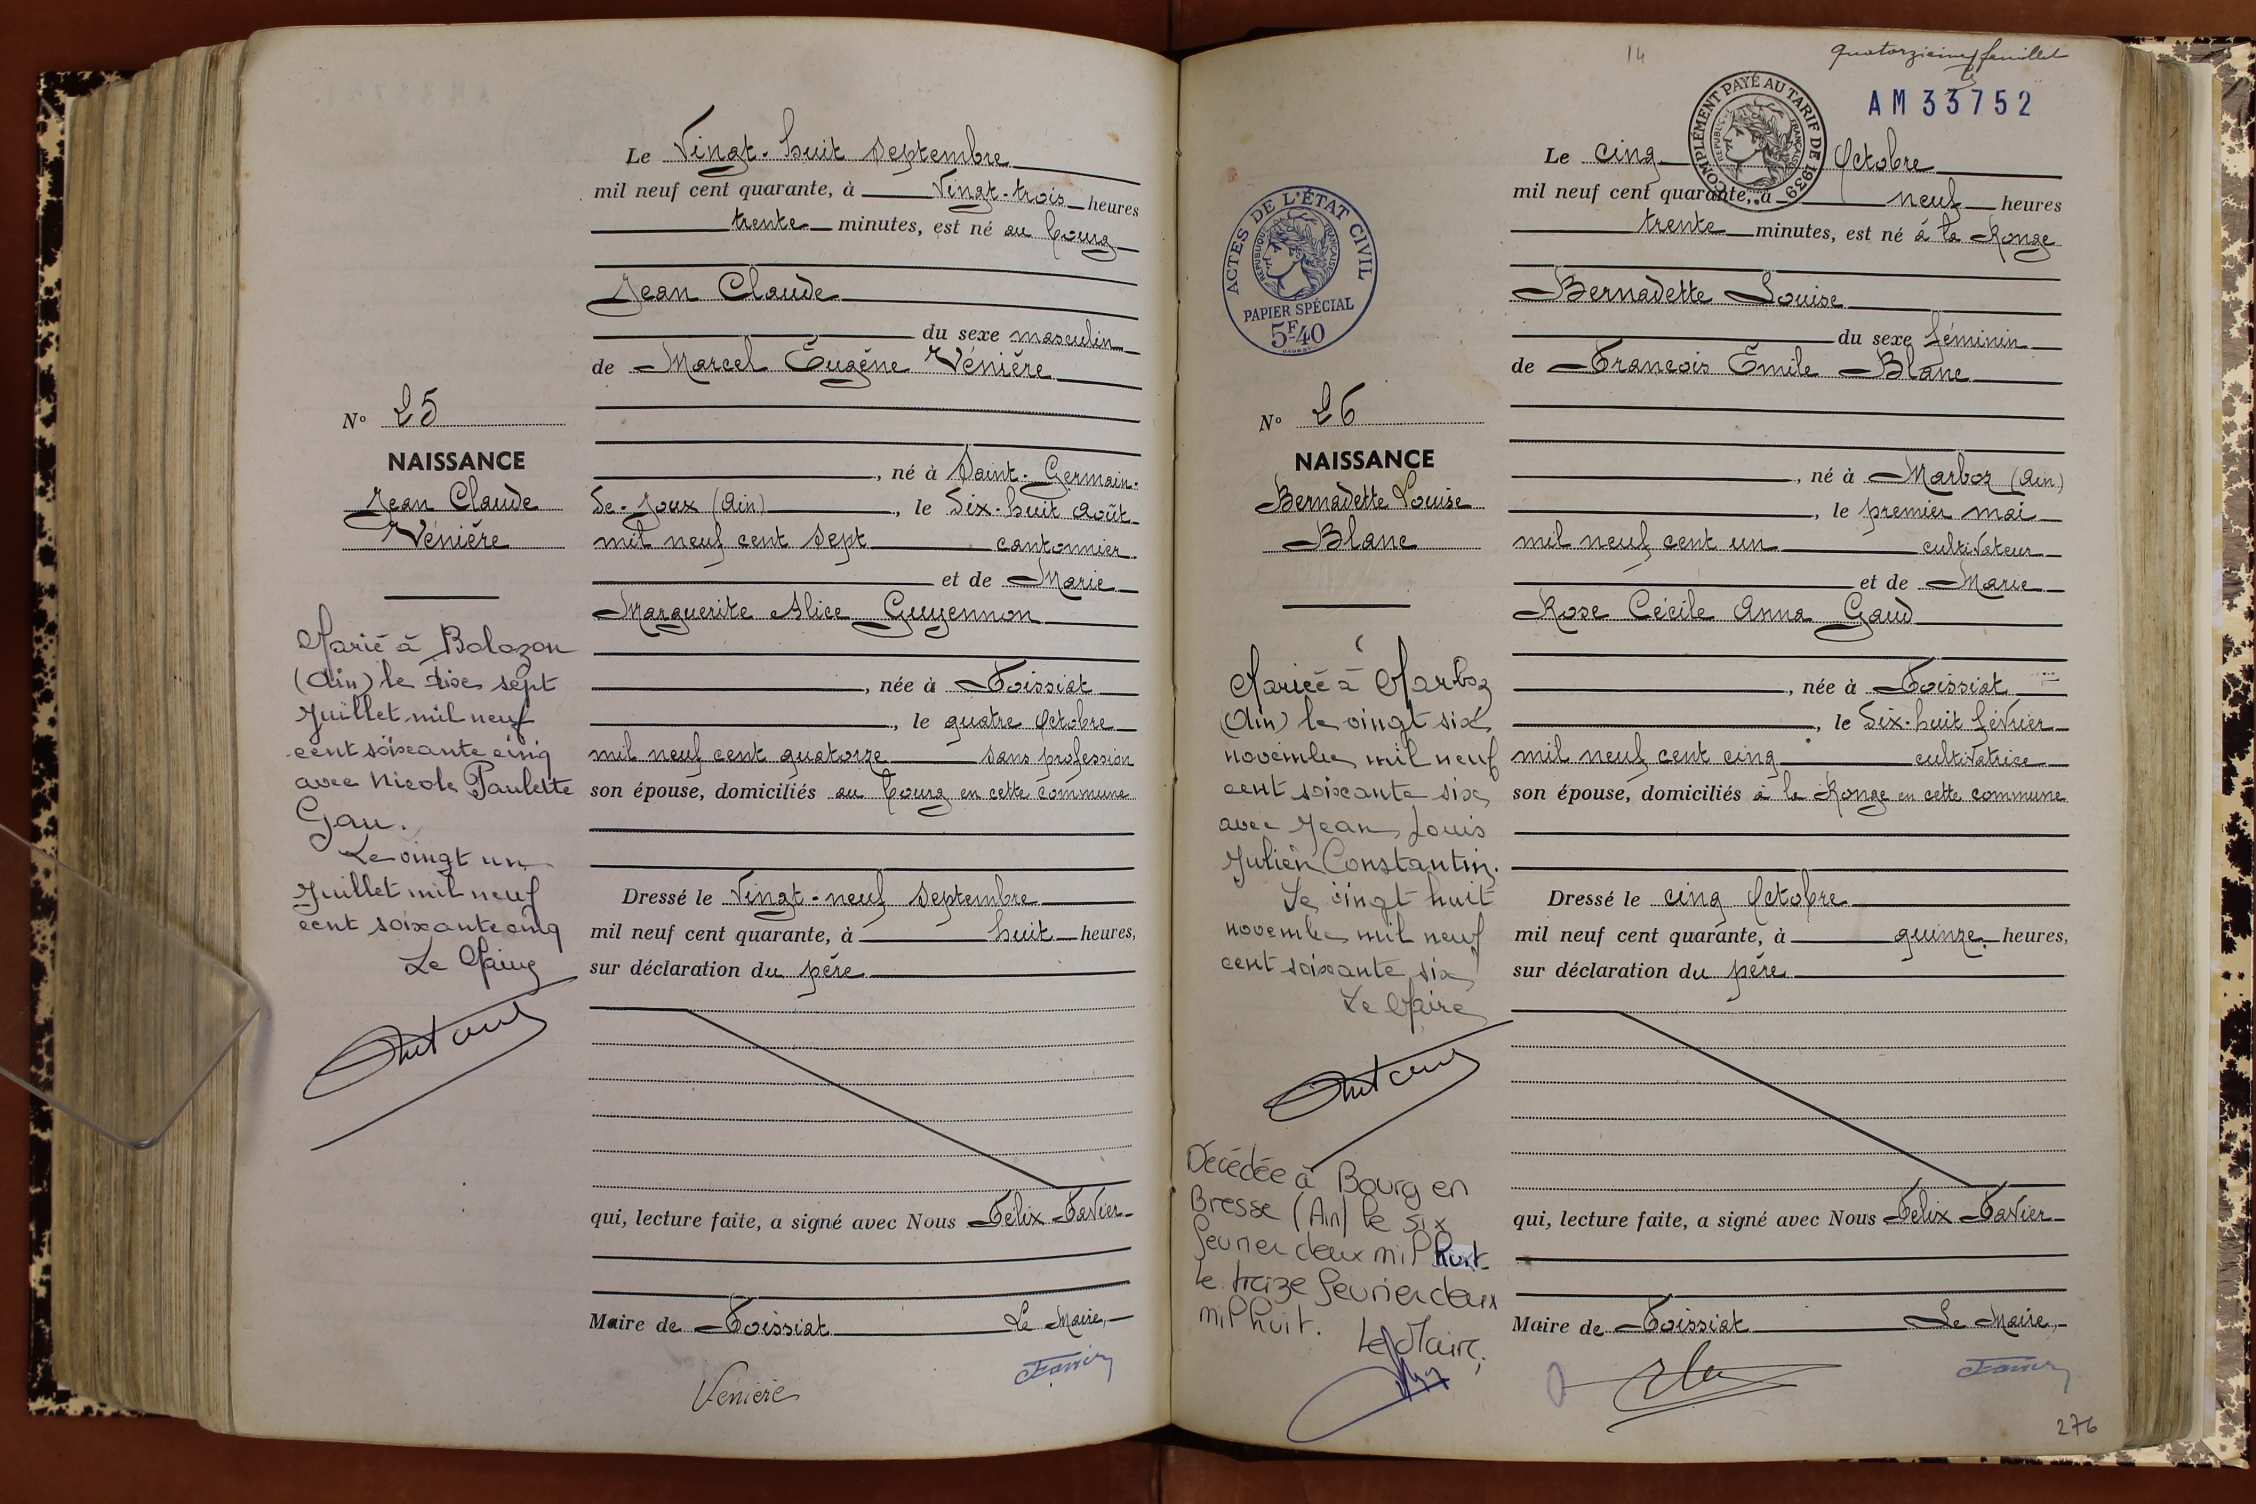 Le Vingt-huit septembre
mil neuf cent quarante, à Vingt-trois heures
trente minutes, est né au bourg
Jean Claude
du sexe masculin
de Marcel Eugène Vénière
N° 25
NAISSANCE
Jean Claude
Vénière
, né à Saint-Germain-
de-Joux (Ain), le dix-huit août
mil neuf cent sept cantonnier
et de Marie
Marguerite Alice Guyennon
, née à Foissiat
, le quatre octobre
mil neuf cent quatorze sans profession
son épouse, domiciliés au bourg en cette commune
Dressé le Vingt-neuf septembre
mil neuf cent quarante, à huit heures,
sur déclaration du père
qui, lecture faite, a signé avec Nous Félix Favier
Maire de Foissiat Le Maire,
Vénière
Favier
Marié à Bolozon
(Ain) le dix sept
Juillet mil neuf
cent soixante cinq
avec Nicole Paulette
Gau.
Le vingt un
Juillet mil neuf
cent soixante cinq
Le Maire
14
quatorzième feuillet
AM 33752
COMPLÉMENT PAYÉ AU TARIF DE 1939
RÉPUBLIQUE FRANÇAISE
ACTES DE L'ÉTAT CIVIL
RÉPUBLIQUE FRANÇAISE
PAPIER SPÉCIAL
5F40
Le cinq Octobre
mil neuf cent quarante, à neuf heures
trente minutes, est né à la Ronge
Bernadette Louise
du sexe féminin
de François Emile Blanc
N° 26
NAISSANCE
Bernadette Louise
Blanc
, né à Marboz (Ain)
, le premier mai
mil neuf cent un cultivateur
et de Marie
Rose Cécile Anna Gaud
, née à Foissiat
, le dix-huit février
mil neuf cent cinq cultivatrice
son épouse, domiciliés à la Ronge en cette commune
Dressé le cinq Octobre
mil neuf cent quarante, à quinze heures,
sur déclaration du père
qui, lecture faite, a signé avec Nous Félix Favier
Maire de Foissiat Le Maire,
Favier
Mariée à Marboz
(Ain) le vingt six
novembre mil neuf
cent soixante six
avec Jean Louis
Julien Constantin.
Le vingt huit
novembre mil neuf
cent soixante six
Le Maire
Décédée à Bourg en
Bresse (Ain) le six
février deux mil huit
le treize février deux
mil huit.
Le Maire,
276